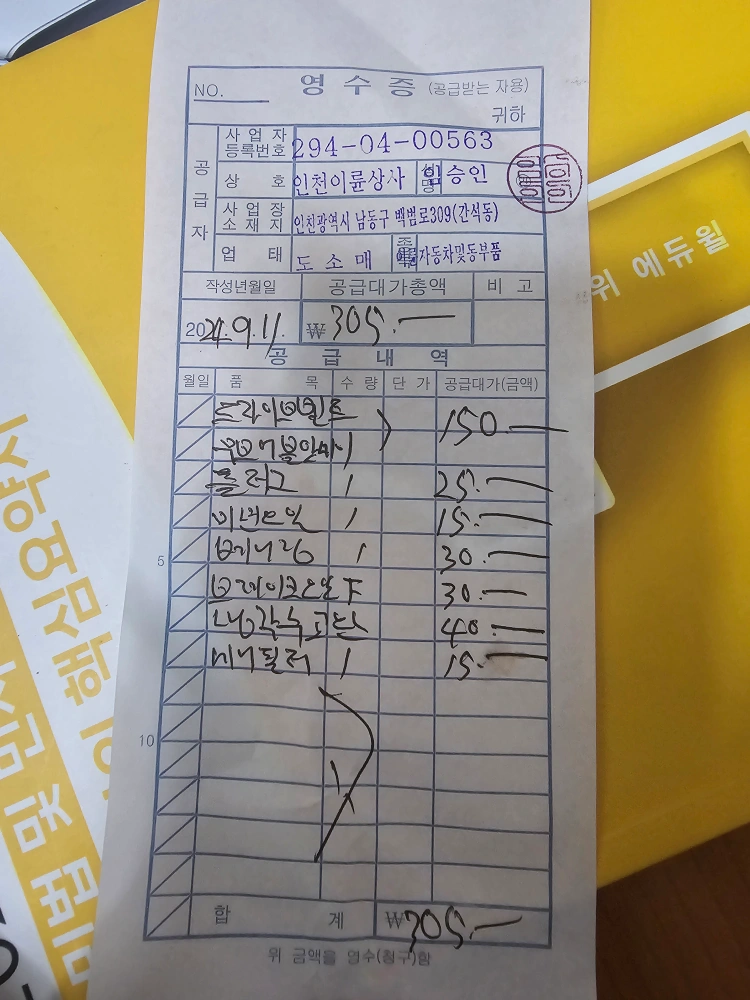 NO.
영 수 증 (공급받는 자용)
귀하
공급자
사업자등록번호 294-04-00563
상 호 인천이륜상사 성명 임승인
사업장소재지 인천광역시 남동구 백범로309(간석동)
업 태 도소매 종목 자동차및동부품
작성년월일 공급대가총액 비 고
2024.9.11. ₩ 305.—
공 급 내 역
월일 품 목 수 량 단 가 공급대가(금액)
드라이브벨트 150.—
무브볼안마 1
플러그 1 25.—
미션오일 1 15.—
1 30.—
5
브레이크오일 F 30.—
냉각수교환 40.—
에어필터 1 15.—
10
합 계 ₩305.—
위 금액을 영수(청구)함
위 에듀윌
핵심요약서
민법 및 민사